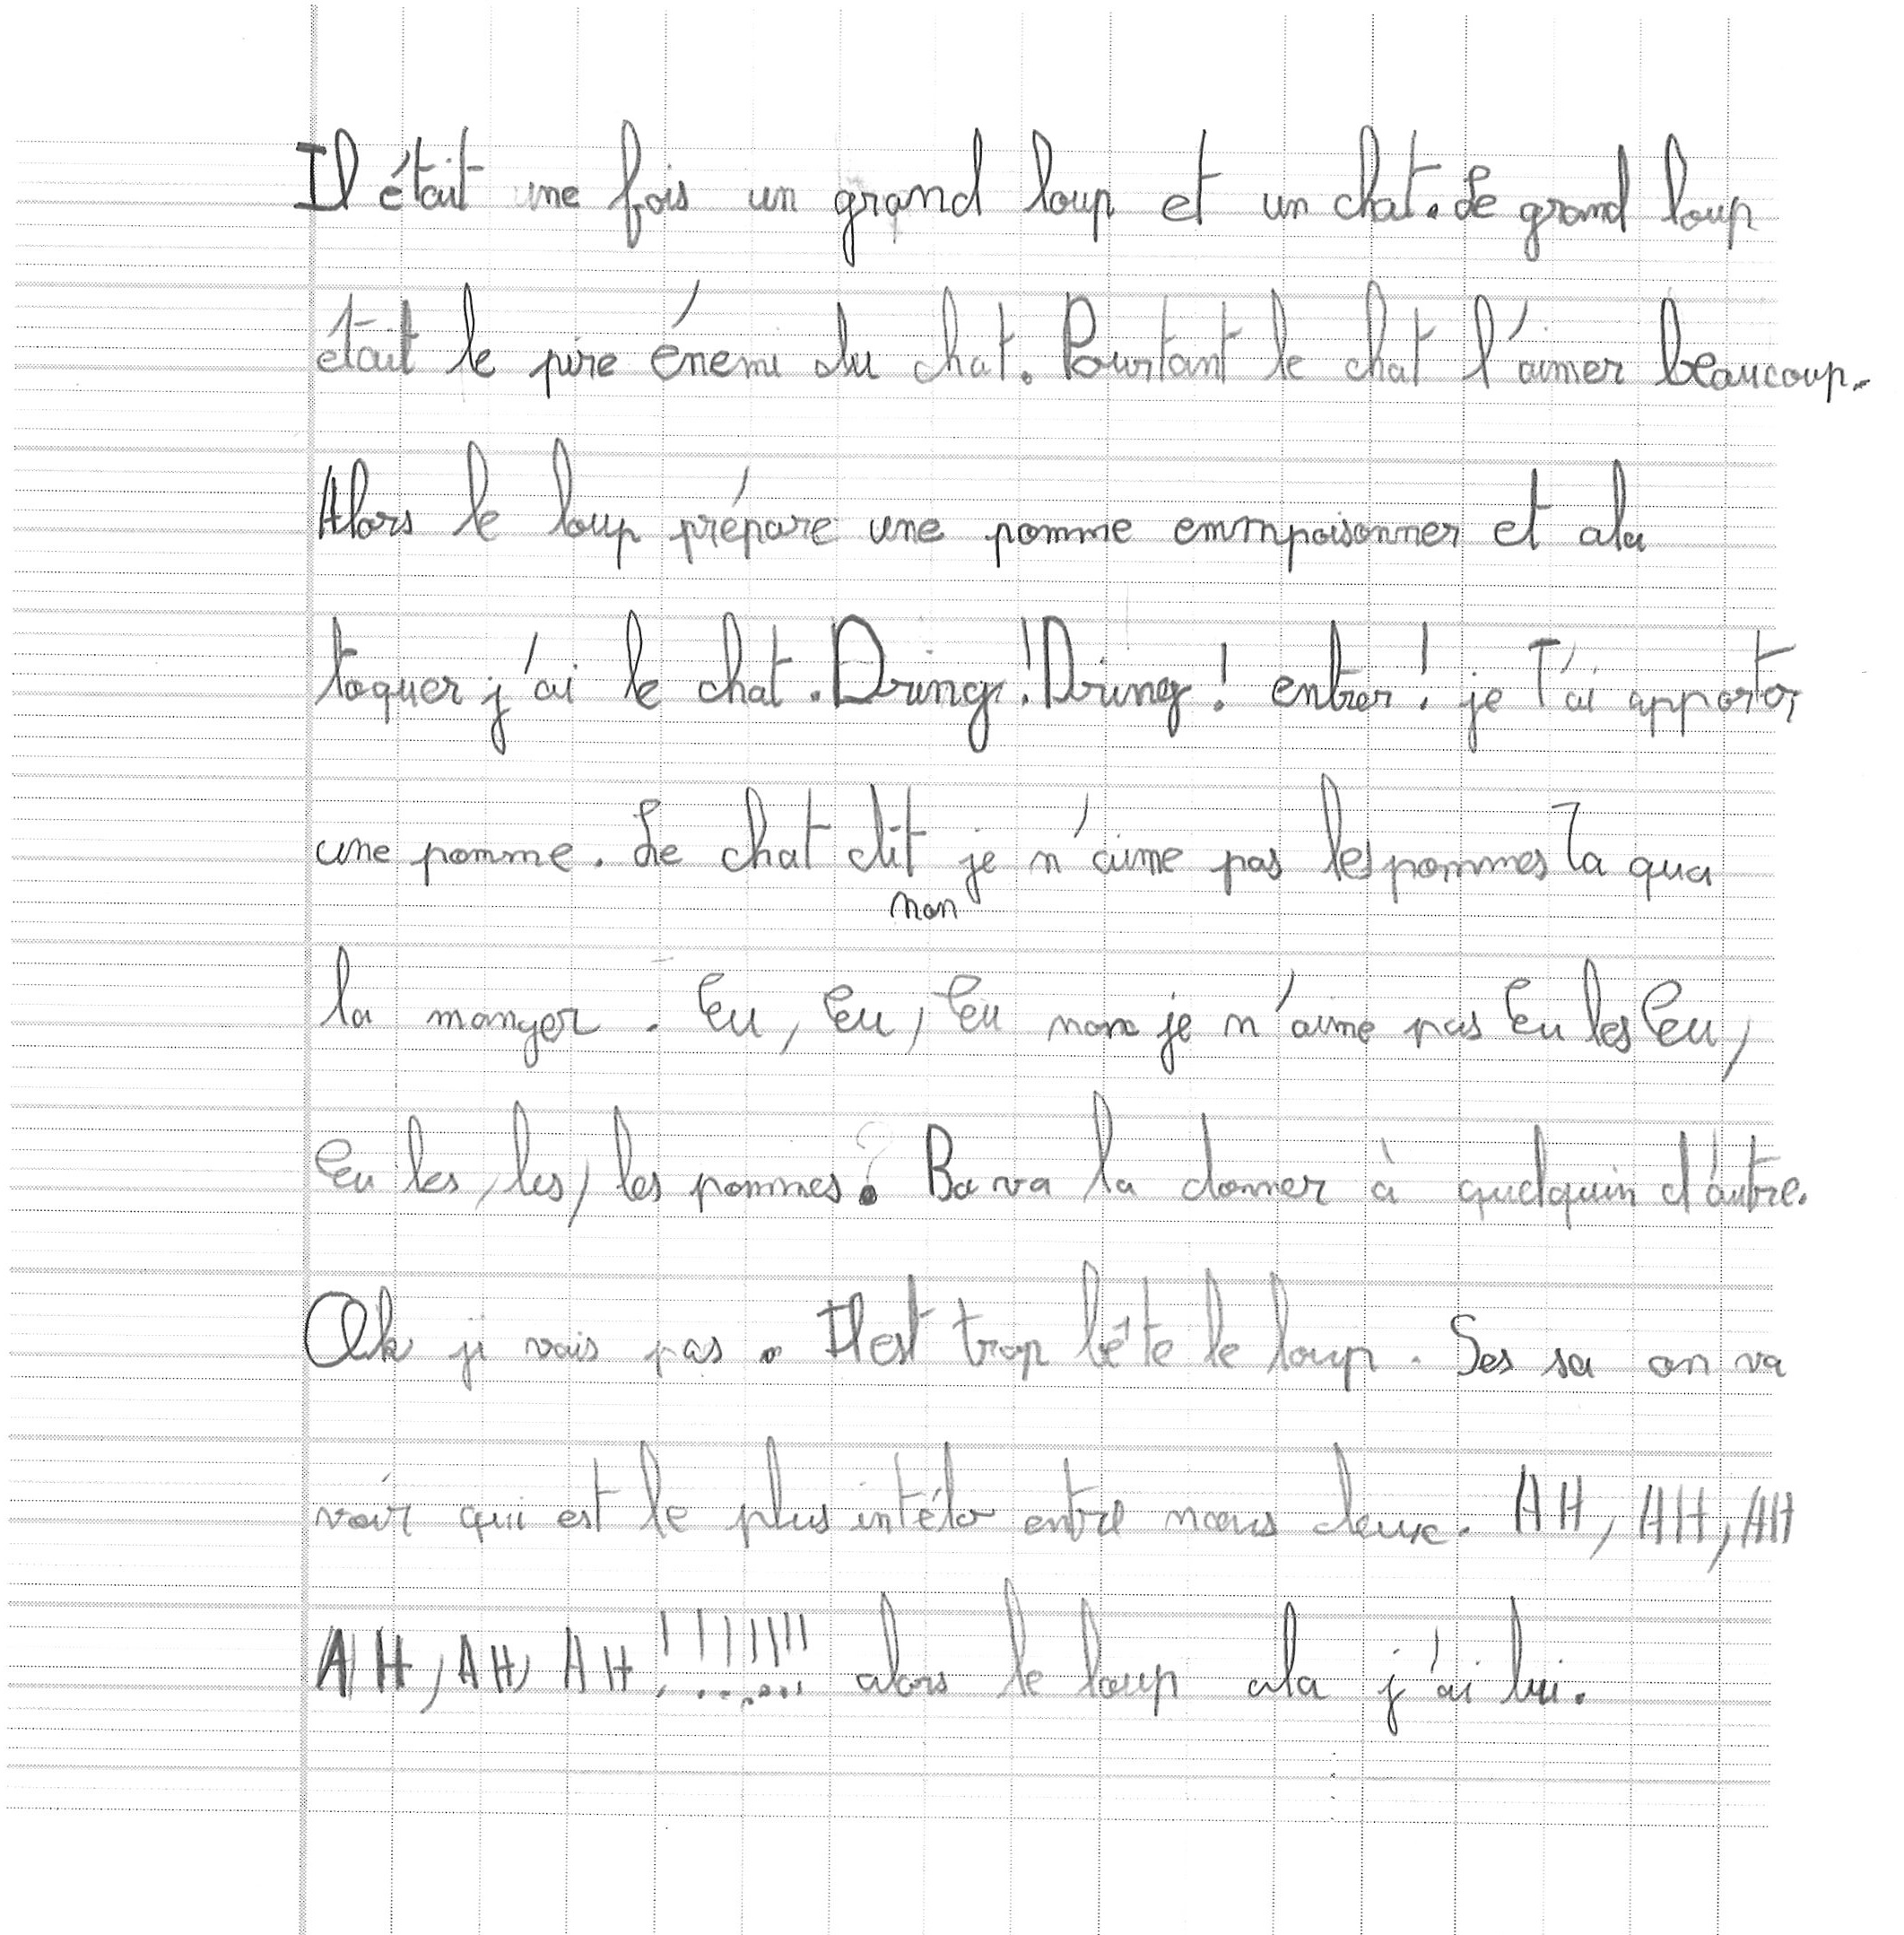 Il était une fois un grand loup et un chat. Le grand loup
était le pire énemi du chat. Pourtant le chat l'aimer beaucoup.
Alors le loup prépare une pomme emmpoisonner et ala
toquer j'ai le chat. Dring! Dring! entrer! je T'ai apporter
une pomme. Le chat dit je n'aime pas les pommes Ta qua
non
la manger. Eu, Eu, Eu non je n'aime pas Eu les Eu,
Eu les, les, les pommes. Ba va la donner à quelquin d'autre.
Ok ji vais pas. Il est trop bête le loup. Ses sa on va
voir qui est le plus intélo entre nous deux. AH, AH, AH
AH, AH, AH !!!!!!!! alors le loup ala j'ai lui.